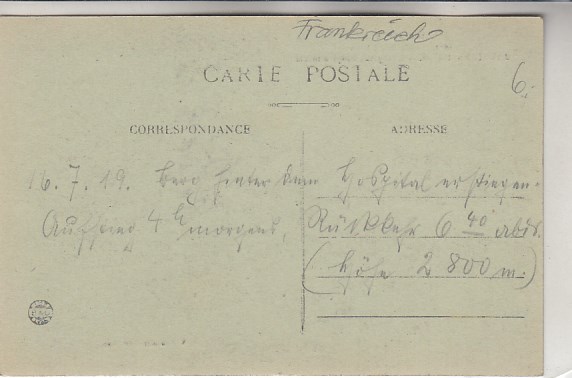 Frankreich
CARTE POSTALE
6.-
CORRESPONDANCE
ADRESSE
16. 7. 19. Berg hinter dem Hospital erstiegen.
Aufstieg 4 h morgens, Rückkehr 6 40 abds.
(Höhe 2 800 m.)